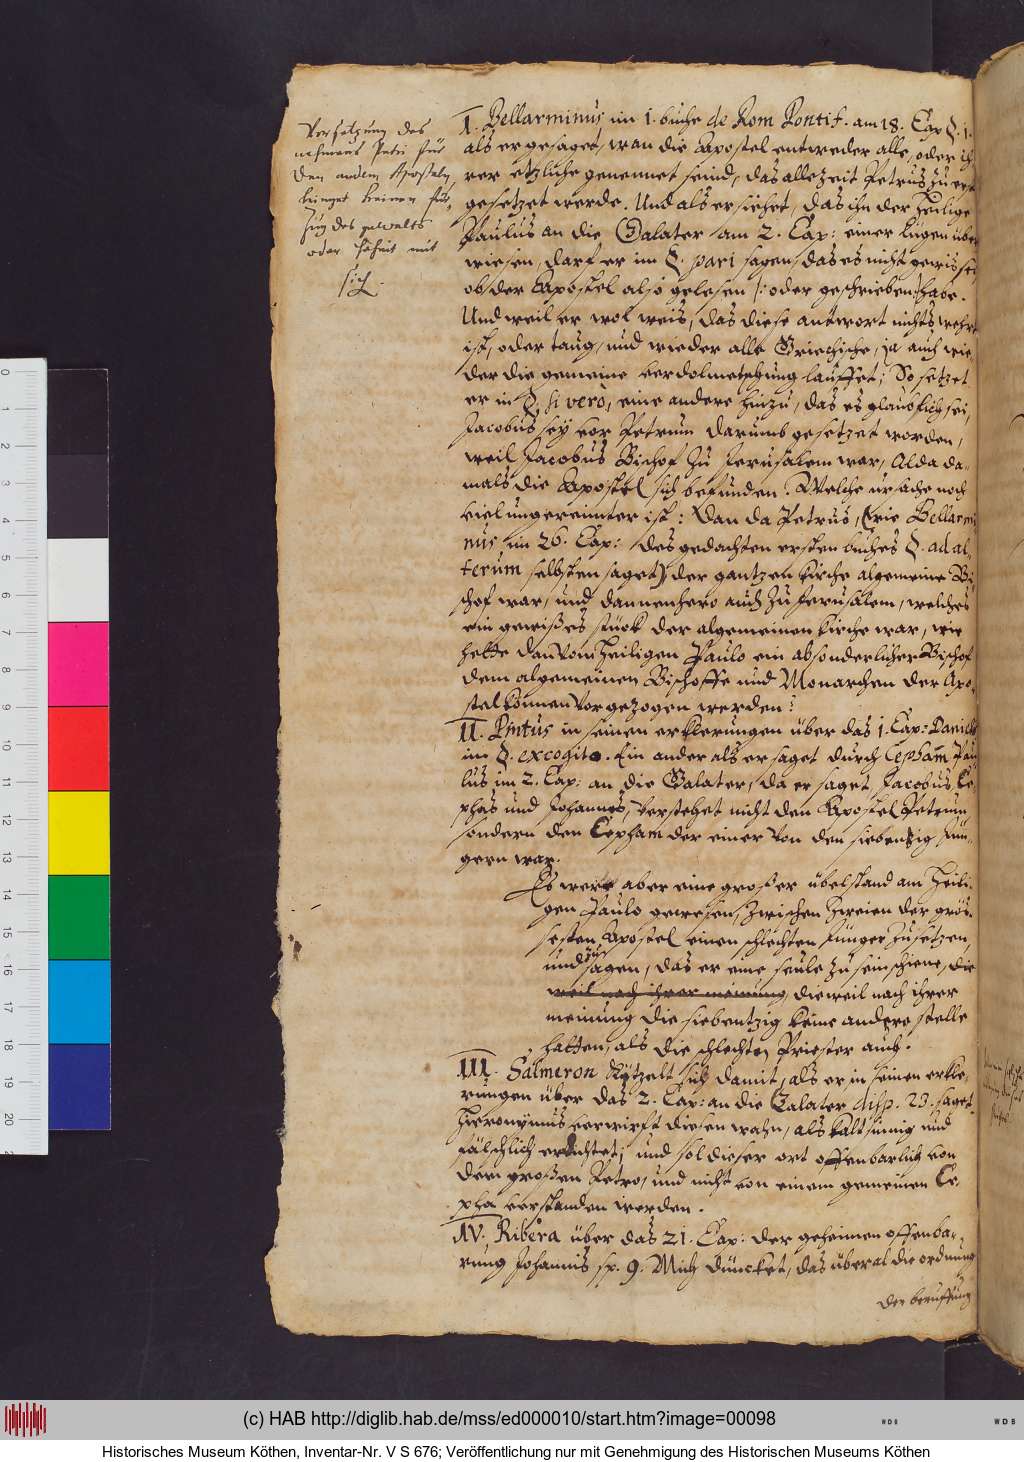 Vorsetzung des
nahmens Petri für
den andern Aposteln,
bringet keinen für-
zug des gewalts
oder hoheit mit
sich.
I. Bellarminus im 1. buche de Rom Pontif. am 18. Cap §. 1.
als er gesaget, wan die Apostel entweder alle, oder ih-
rer etzliche genennet seind, das allezeit Petrus zu erst
gesetzet werde. Und als er siehet, das ihn der Heilige
Paulus an die Galater am 2. Cap: einer lügen über
wiesen, darf er im §. pari sagen, das es nicht gewis sei,
ob der Apostel also gelesen /: oder geschrieben :/ habe.
Und weil er wol weis, das diese antwort nichts wehrt
ist, oder taug, und wieder alle Griechische, ja auch wie,
der die gemeine verdolmetschung lauffet; So setzet
er in §. si vero, eine andere hinzu, das es glaublich sei,
Jacobus sey vor Petrum darumb gesetzet worden,
weil Jacobus Bischof zu Jerusalem war, Alda da-
mals die Apostel sich befunden. Welche ursache noch
viel ungereimter ist: Dan da Petrus, (wie Bellarmi
nus im 26. Cap: des gedachten ersten buches §. ad al-
terum selbsten saget) der gantzen kirche algemeine Bi
schof war, und dannenhero auch zu Jerusalem, welches
ein gewißes stück der algemeinen kirche war, wie
hette dan vom Heiligen Paulo ein absonderlicher Bischof
dem algemeinen Bischoffe und Monarchen der Apo-
stel können vorgezogen werden?
II. Pintus in seinen erklerungen über das 1. Cap: Danielis
im §. excogito. Ein ander als er saget durch Cepham Pau
lus im 2. Cap: an die Galater, da er saget Jacobus Ce,
phas und Johannes, verstehet nicht den Apostel Petrum
sondern den Cepham der einer von den siebentzig Jün-
gern war.
Es were aber eine großer übelstand am Heili-
gen Paulo gewesen, zwischen zweien der grös-
sesten Apostel einen schlechten Jünger zu setzen,
und zu sagen, das er eine seule zu sein schiene, die
weil nach ihrer meinung, dieweil nach ihrer
meinung die siebentzig keine andere stelle
hatten, als die schlechten Priester auch.
III. Salmeron kützelt sich damit, als er in seinen erkle-
rungen über das 2. Cap: an die Galater disp. 23. saget.
Hieronymus verwirft diesen wahn, als kaltsinnig und
fälschlich erdichtet; und sol dieser ort offenbarlich von
dem großen Petro, und nicht von einem gemeinen Ce,
pha verstanden werden.
IV. Ribera über das 21. Cap: der geheimen offenba-
rung Johannis sp. 9. Mich düncket, das überal die ordnung
der beruffung
(c) HAB http://diglib.hab.de/mss/ed000010/start.htm?image=00098
WDB
WDB
Historisches Museum Köthen, Inventar-Nr. V S 676; Veröffentlichung nur mit Genehmigung des Historischen Museums Köthen